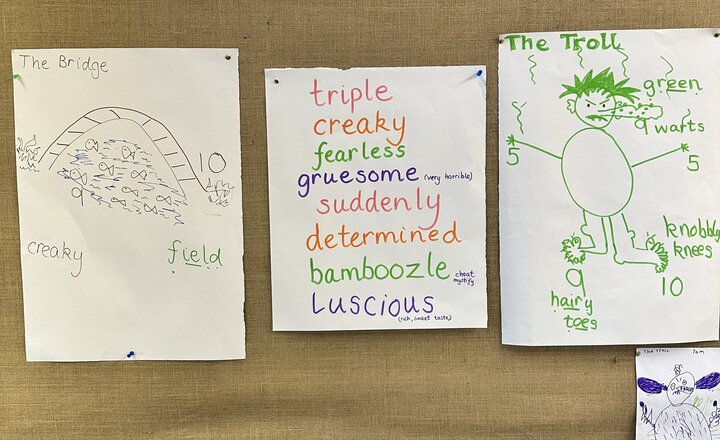 The Bridge
10
9
creaky
field
triple
creaky
fearless
gruesome (very horrible)
suddenly
determined
bamboozle cheat mystify
Luscious
(rich, sweet taste)
The Troll
green
9 warts
5
5
knobbly
knees
9
10
hairy
toes
The Troll Tom